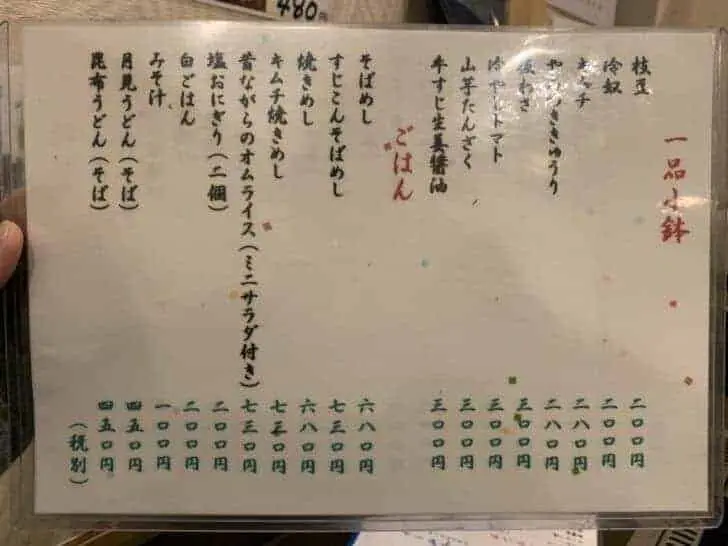 480円
一品小鉢
枝豆 二〇〇円
冷奴 二〇〇円
キムチ 二八〇円
二八〇円
板わさ 三〇〇円
冷やしトマト 三〇〇円
山芋たんざく 三〇〇円
牛すじ生姜醤油 三〇〇円
ごはん
そばめし 六八〇円
すじこんそばめし 七三〇円
焼きめし 六八〇円
キムチ焼きめし 七三〇円
昔ながらのオムライス(ミニサラダ付き) 七三〇円
塩おにぎり(二個) 二〇〇円
白ごはん 二〇〇円
みそ汁 一〇〇円
月見うどん(そば) 四五〇円
昆布うどん(そば) 四五〇円
(税別)